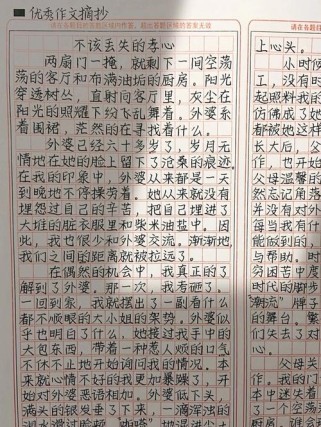 优秀作文摘抄
请在各题目的答题区域内作答，超出答题区域的答案无效
不该丢失的孝心
两扇门一掩，就剩下一间空荡
荡的客厅和布满油垢的厨房。阳光
穿透树丛，直射向客厅里，灰尘在
阳光的照耀下纷飞乱舞着。外婆系
着围裙，茫然的在寻找着什么。
外婆已经六十多岁了，岁月无
情地在她的脸上留下了沧桑的痕迹
在我的印象中，外婆从来都是一天
到晚地不停操劳着。她从来就没有
埋怨过自己的辛苦，把自己埋进了
大堆的脏衣服里和柴米油盐中。因
此，我也很少和外婆交流。渐渐地，
我们之间的距离就被拉远了。
在偶然的机会中，我真正的了
解到了外婆。那一次，我考砸了。
一回到家，我就摆出了一副看什么
都不顺眼的大小姐的架势。外婆似
乎也明白了什么，她接过我手中的
大包东西，带着一种恶人烦的口气
不休不止地开始询问我的情况。本
来就心情不好的我更加暴躁了，开
始对外婆恶语相加。外婆低下头，
满头的银发垂了下来，一滴浑浊的
上心头。
小时候
工，没有时
起照料我的
仿佛成了她
都被她这样
长大后，父
作，也开始
父母温馨的
然忘记角落
并没有对外
每当我有什
能做到的，
与帮助。时
穷困苦中度
时代的脚步
潮流”牌子
的舞台。繁
们失去了对
心。
父母关
作。我的门
本中迷失着
了一个空荡